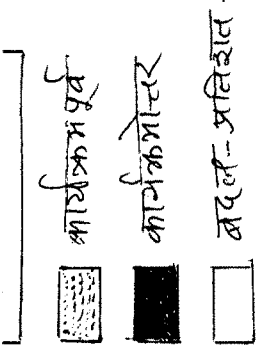 कार्यक्रमपूर्व
कार्यक्रमोत्तर
बदल-प्रतिशत